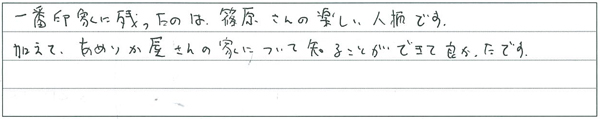 一番印象に残ったのは、篠原さんの楽しい人柄です。
加えて、あめりか屋さんの家について知ることができて良かったです。